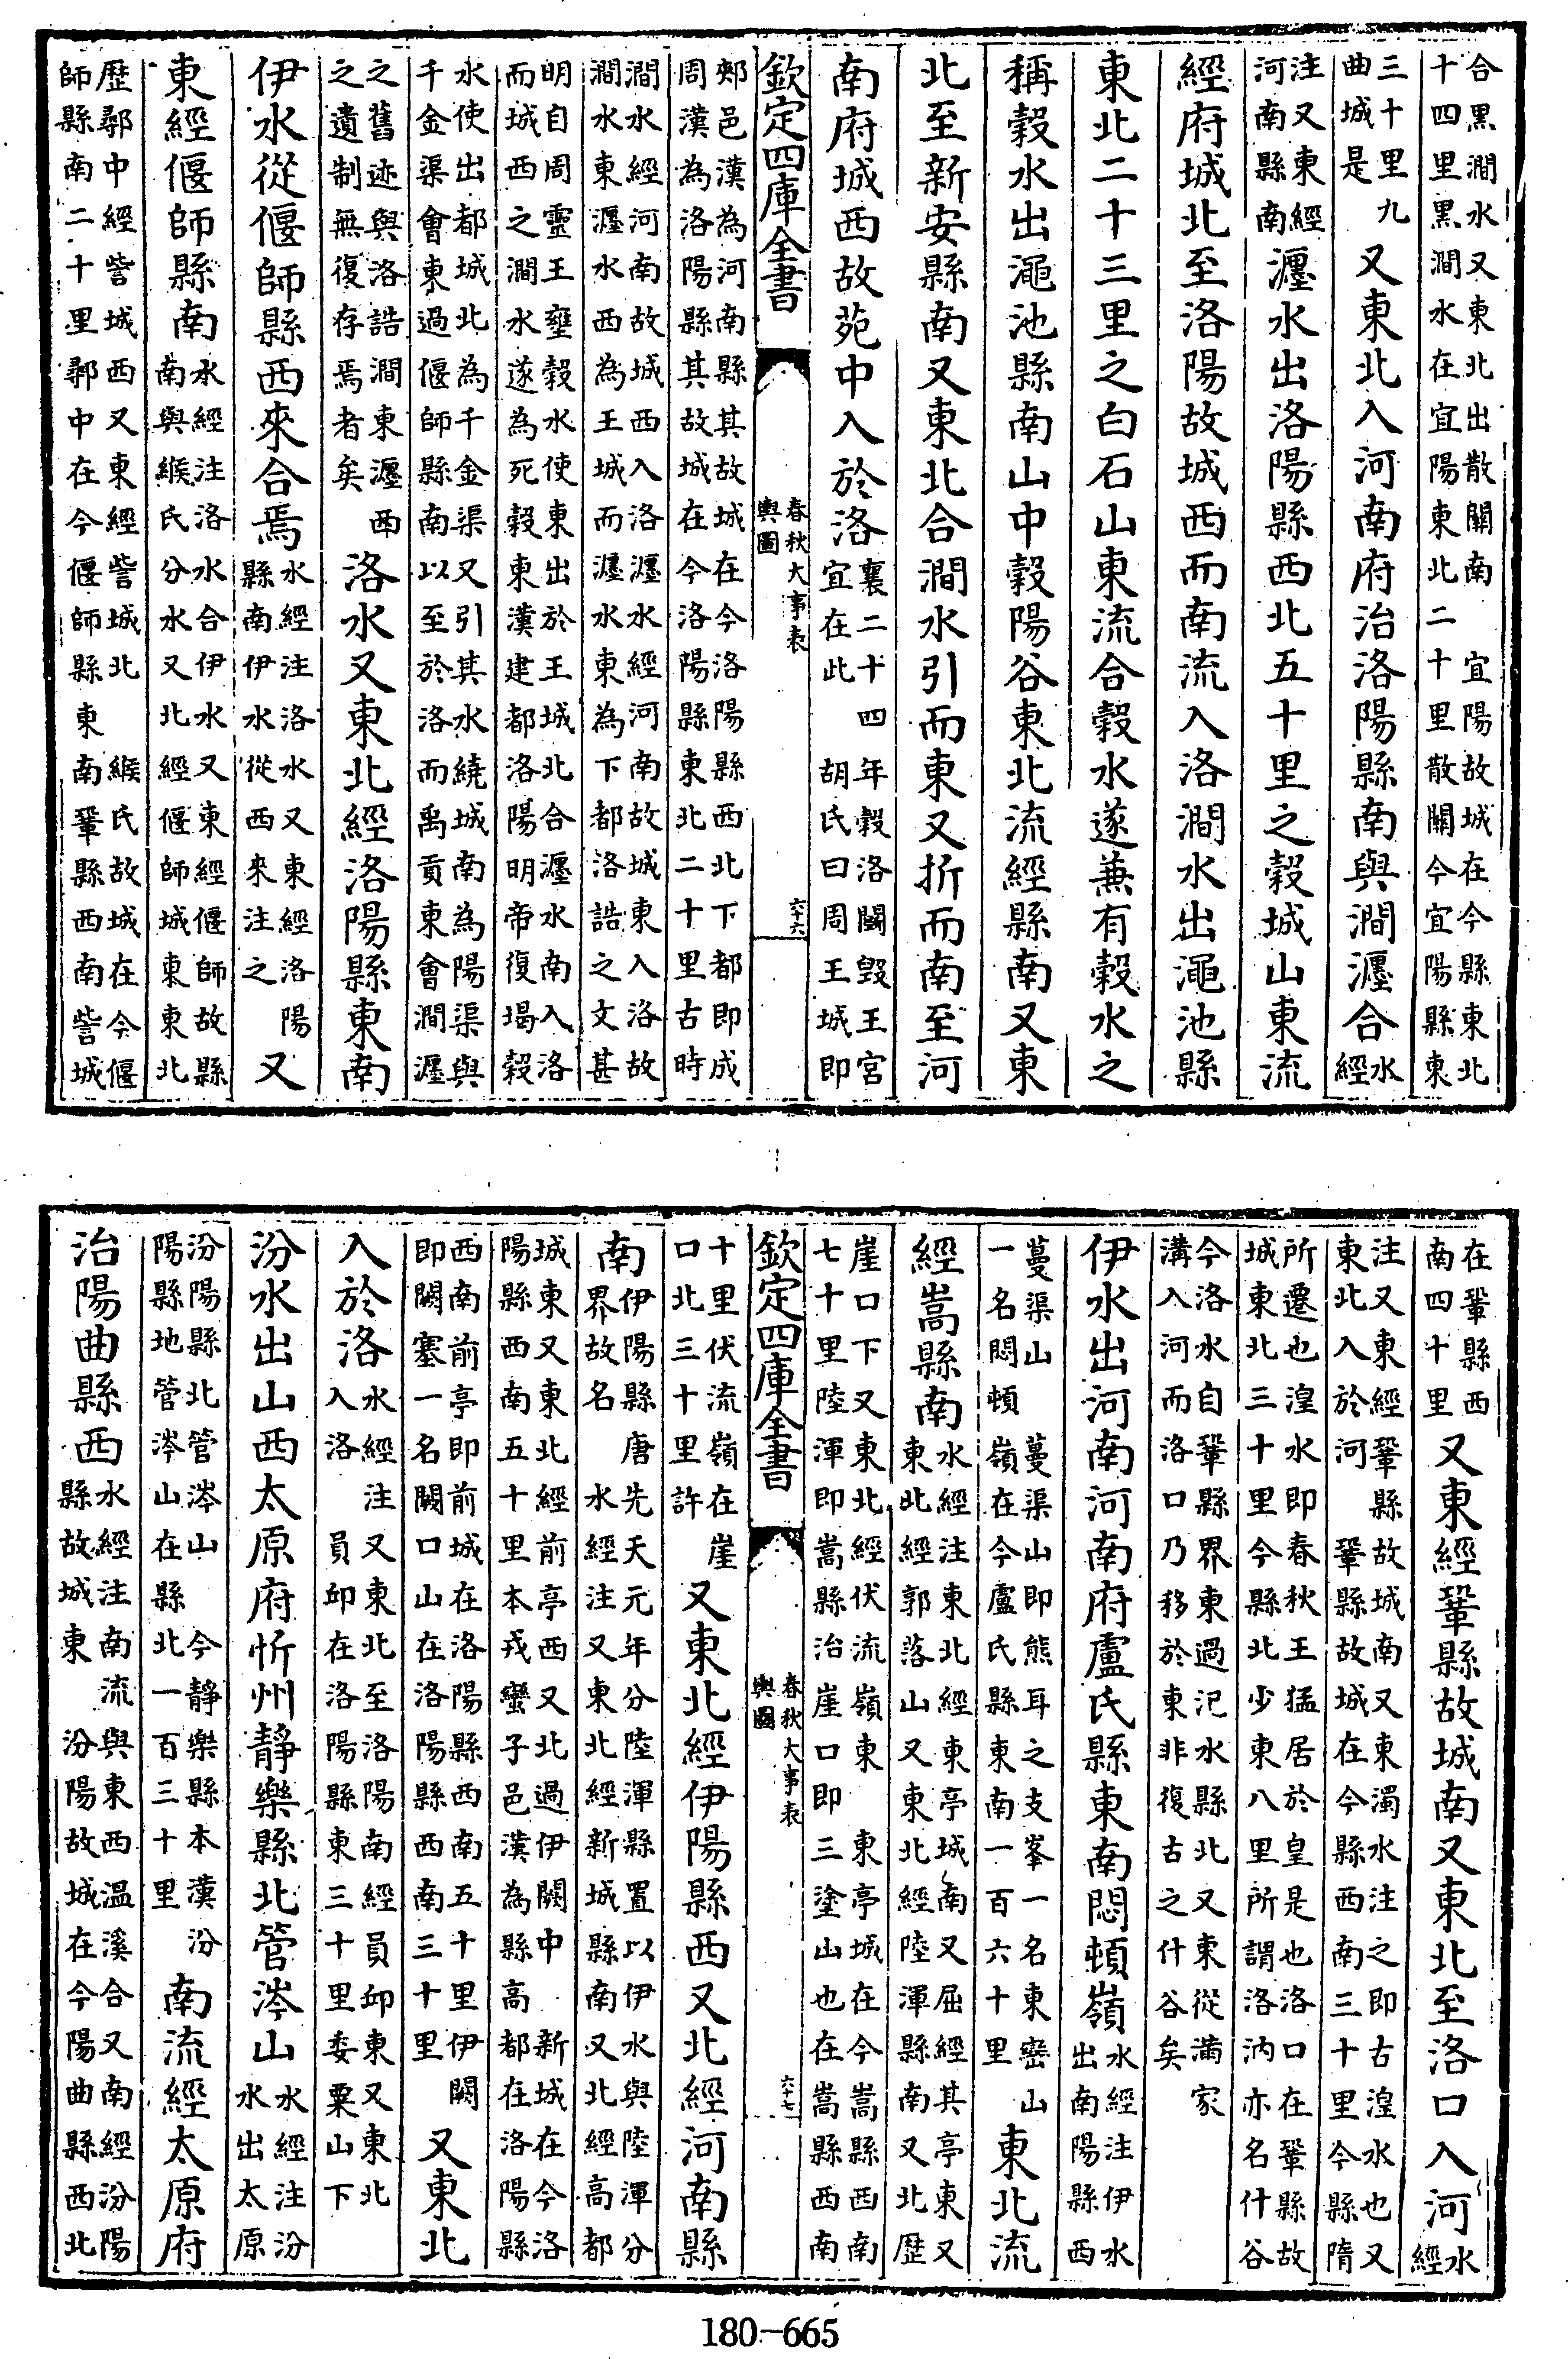 合黒澗水又東北出散關南 宜陽故城在今縣東北
十四里黒澗水在宜陽東北二十里散關今宜陽縣東
三十里九
曲城是
又東北入河南府治洛陽縣南與澗瀍合
水
經
注又東經
河南縣南
瀍水出洛陽縣西北五十里之穀城山東流
經府城北至洛陽故城西而南流入洛澗水出澠池縣
東北二十三里之白石山東流合穀水遂兼有穀水之
稱穀水出澠池縣南山中穀陽谷東北流經縣南又東
北至新安縣南又東北合澗水引而東又折而南至河
南府城西故苑中入於洛
襄二十四年穀洛鬭毀王宮
宜在此 胡氏曰周王城即
欽定四庫全書
春秋大事表
輿圖
六十六
郟邑漢為河南縣其故城在今洛陽縣西北下都即成
周漢為洛陽縣其故城在今洛陽縣東北二十里古時
澗水經河南故城西入洛瀍水經河南故城東入洛故
澗水東瀍水西為王城而瀍水東為下都洛誥之文甚
明自周靈王壅穀水使東出於王城北合瀍水南入洛
而城西之澗水遂為死穀東漢建都洛陽明帝復堨穀
水使出都城北為千金渠又引其水繞城南為陽渠與
千金渠會東過偃師縣南以至於洛而禹貢東會澗瀍
之舊迹與洛誥澗東瀍西
之遺制無復存焉者矣
洛水又東北經洛陽縣東南
伊水從偃師縣西來合焉
水經注洛水又東經洛陽
縣南伊水從西來注之
又
東經偃師縣南
水經注洛水合伊水又東經偃師故縣
南與緱氏分水又北經偃師城東東北
歷鄩中經訾城西又東經訾城北 緱氏故城在今偃
師縣南二十里鄩中在今偃師縣東南鞏縣西南訾城
在鞏縣西
南四十里
又東經鞏縣故城南又東北至洛口入河
水
經
注又東經鞏縣故城南又東濁水注之即古湟水也又
東北入於河 鞏縣故城在今縣西南三十里今縣隋
所遷也湟水即春秋王猛居於皇是也洛口在鞏縣故
城東北三十里今縣北少東八里所謂洛汭亦名什谷
今洛水自鞏縣界東過汜水縣北又東從滿家
溝入河而洛口乃移於東非復古之什谷矣
伊水出河南河南府盧氏縣東南悶頓嶺
水經注伊水
出南陽縣西
蔓渠山 蔓渠山即熊耳之支峯一名東巒山
一名悶頓嶺在今盧氏縣東南一百六十里
東北流
經嵩縣南
水經注東北經東亭城南又屈經其亭東又
東北經郭落山又東北經陸渾縣南又北歷
崖口下又東北經伏流嶺東 東亭城在今嵩縣西南
七十里陸渾即嵩縣治崖口即三塗山也在嵩縣西南
十里伏流嶺在崖
口北三十里許
又東北經伊陽縣西又北經河南縣
南
伊陽縣唐先天元年分陸渾縣置以伊水與陸渾分
界故名 水經注又東北經新城縣南又北經高都
城東又東北經前亭西又北過伊闕中 新城在今洛
陽縣西南五十里本戎蠻子邑漢為縣高都在洛陽縣
西南前亭即前城在洛陽縣西南五十里伊闕
即闕塞一名闕口山在洛陽縣西南三十里
又東北
入於洛
水經注又東北至洛陽南經員邱東又東北
入洛 員邱在洛陽縣東三十里委粟山下
汾水出山西太原府忻州靜樂縣北管涔山
水經注汾
水出太原
汾陽縣北管涔山 今靜樂縣本漢汾
陽縣地管涔山在縣北一百三十里
南流經太原府
治陽曲縣西
水經注南流與東西温溪合又南經汾陽
縣故城東 汾陽故城在今陽曲縣西北
180-665